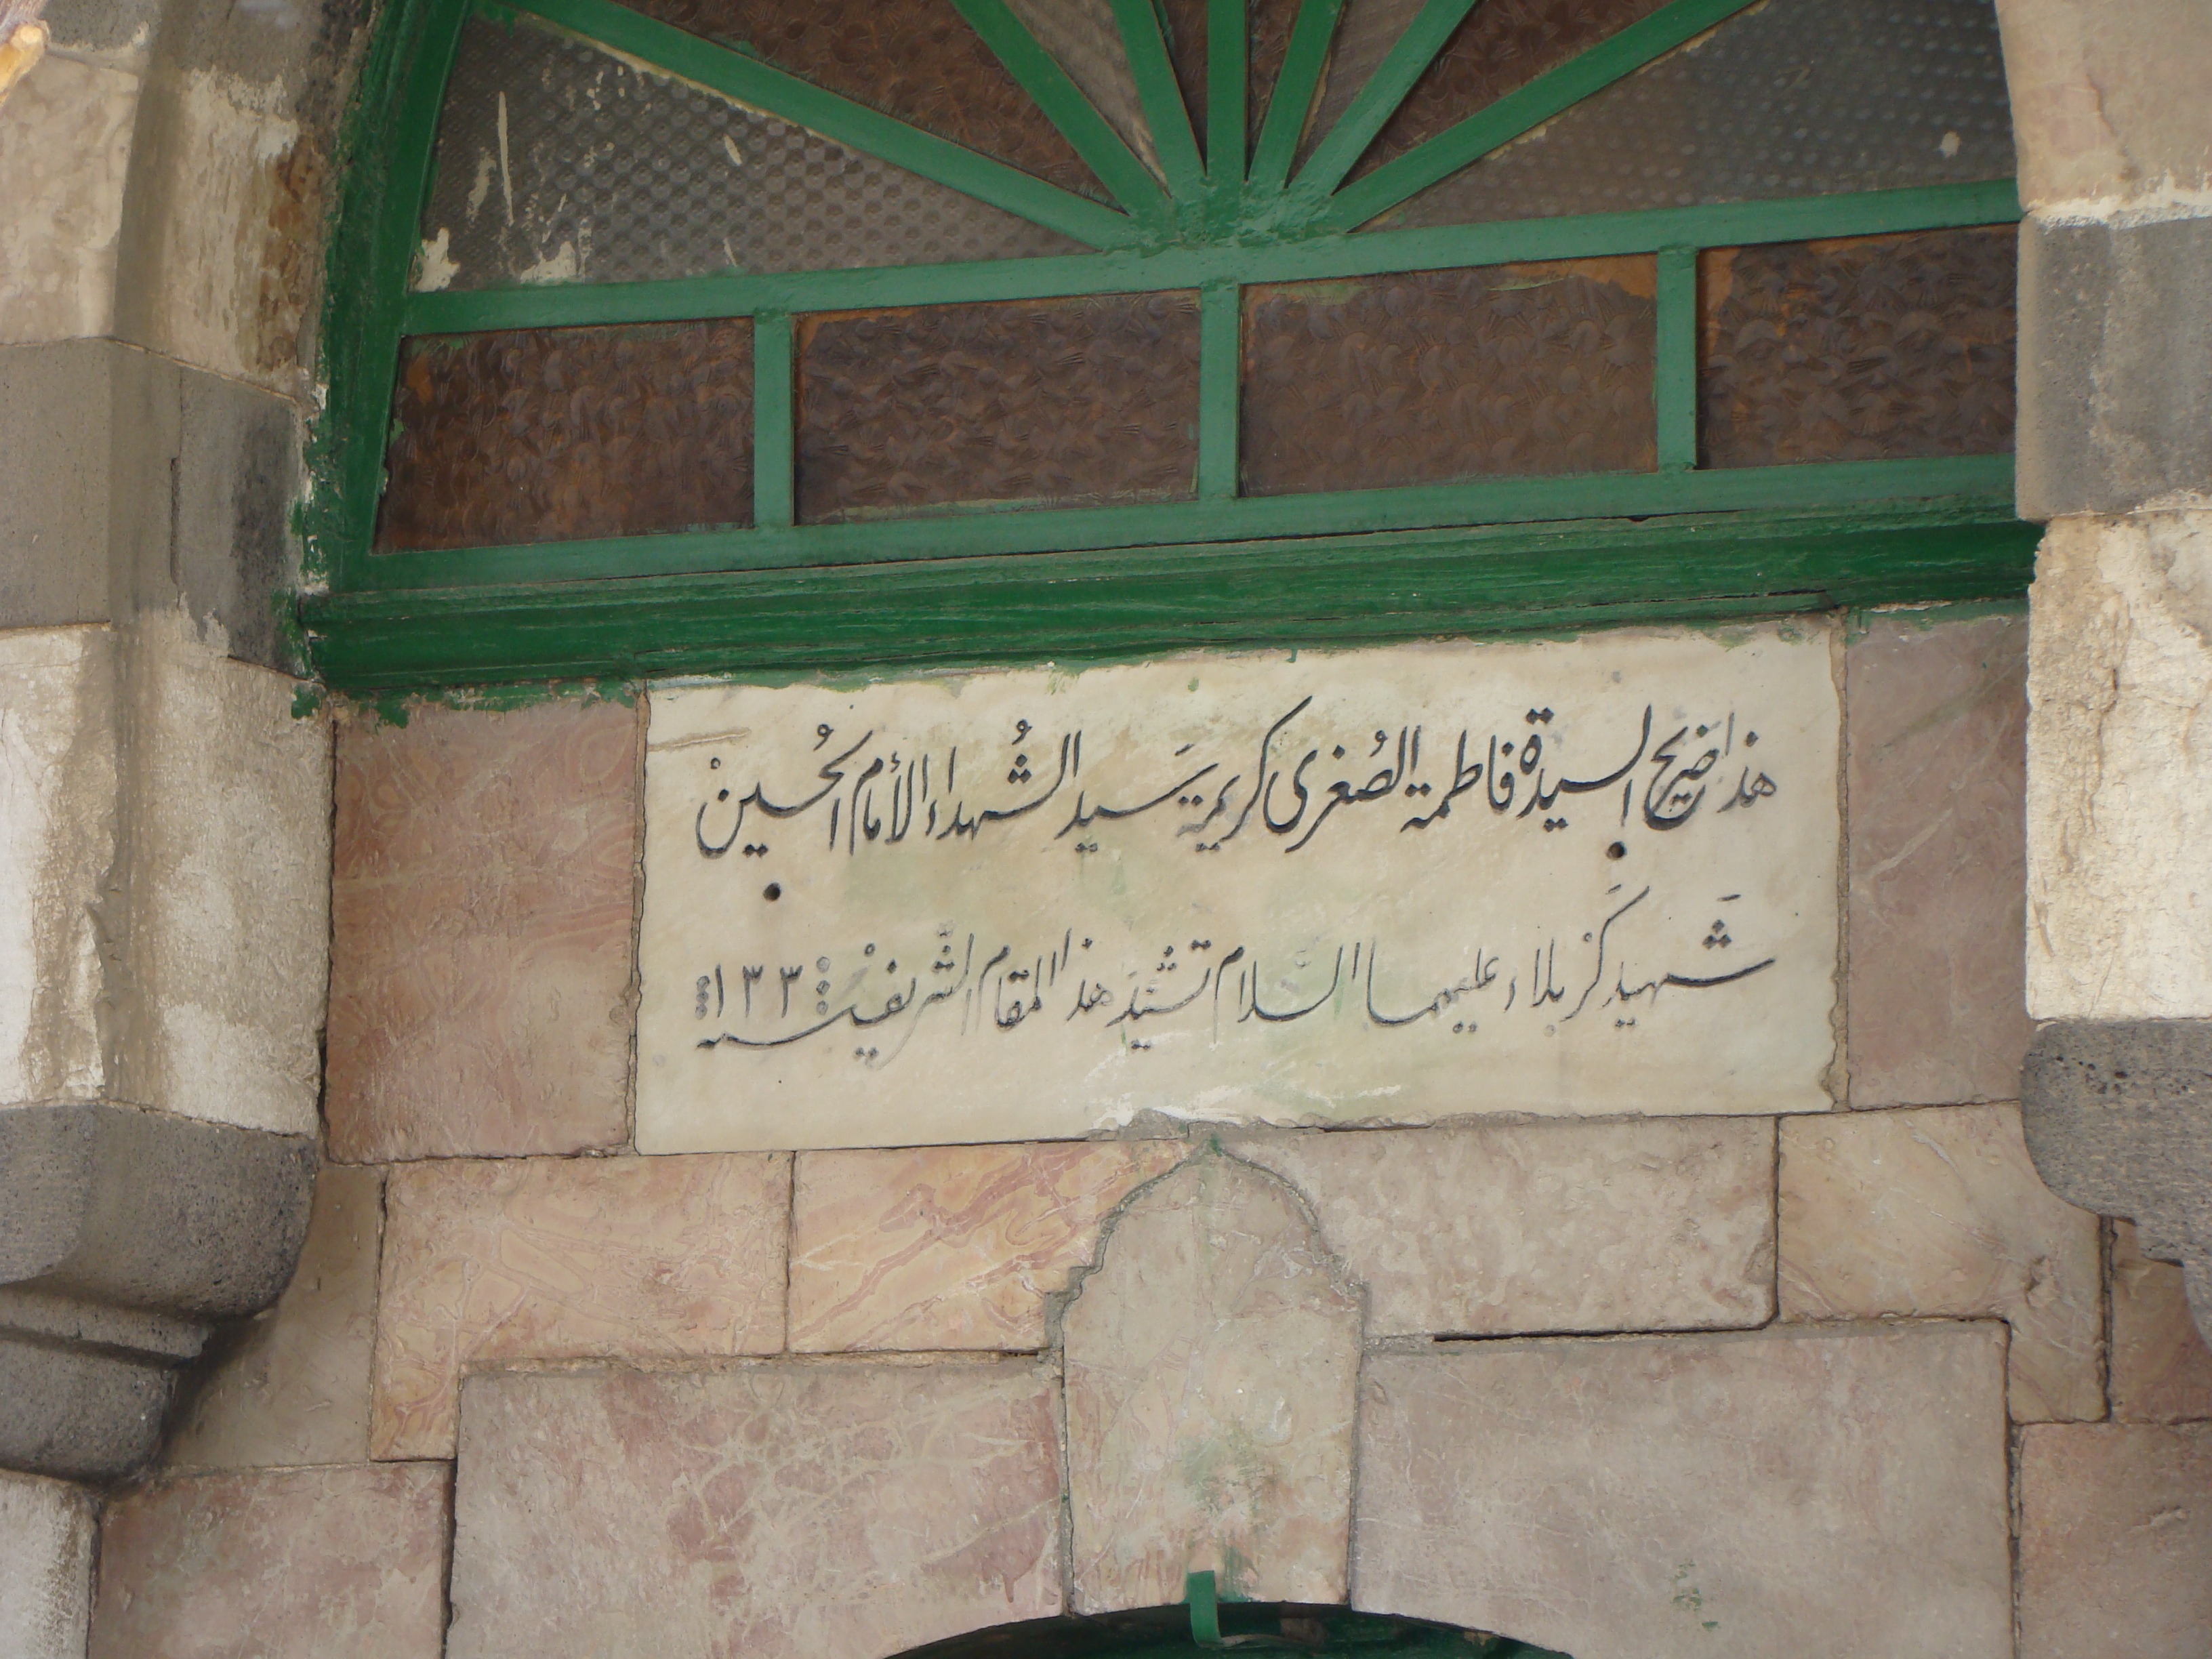 هذا ضريح السيدة فاطمة الصُغرى كريمة سَيد الشُهداء الأمام الحُسينْ
شَهيد كَربلاء عليهما السلام تشُيّد هذا المقام الشّريف سنة ١٣٣٠